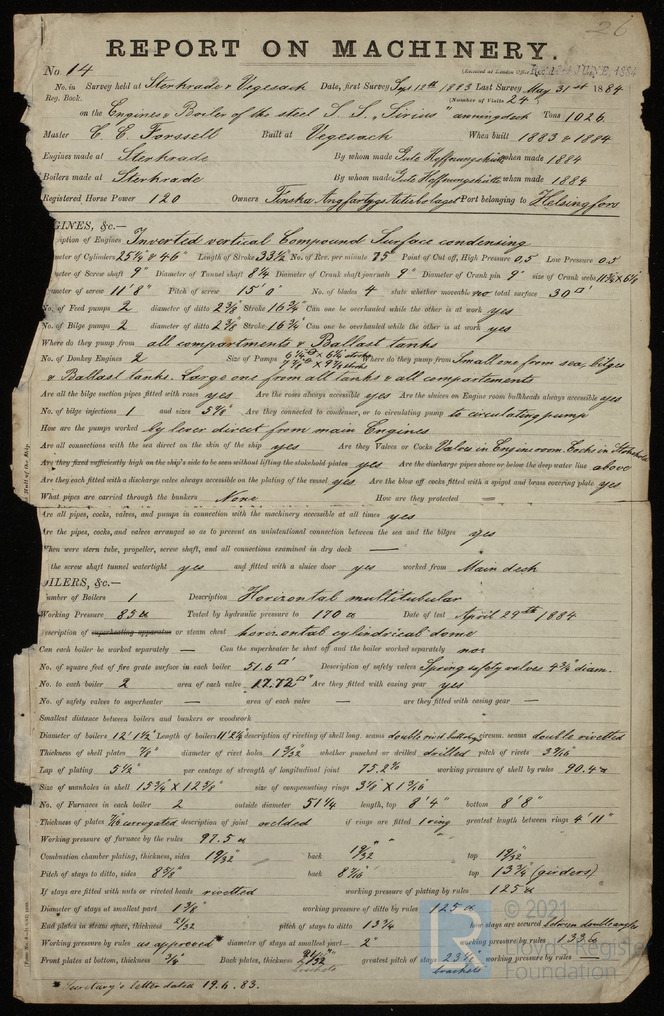 26
REPORT ON MACHINERY.
No 14 (Received at London Office Rec'd 24 JUNE, 1884
No. in Survey held at Sterkrade & Vegesack Date, first Survey Sep 12th 1883 Last Survey May 31st 1884
Reg. Book. (Number of Visits 24)
on the Engines & Boiler of the steel S. S. "Sirius" Tons 1026
Master C. E. Forssell Built at Vegesack When built 1883 & 1884
Engines made at Sterkrade By whom made Gute Hoffnungshütte when made 1884
Boilers made at Sterkrade By whom made Gute Hoffnungshütte when made 1884
Registered Horse Power 120 Owners Finska Angfartygs Actiebolaget Port belonging to Helsingfors
GINES, &c.—
ription of Engines Inverted vertical Compound Surface condensing
meter of Cylinders 25¼ & 46" Length of Stroke 33½ No. of Rev. per minute 75 Point of Cut off, High Pressure 0.5 Low Pressure 0.5
meter of Screw shaft 9" Diameter of Tunnel shaft 8¼ Diameter of Crank shaft journals 9" Diameter of Crank pin 9" size of Crank webs
ameter of screw 11' 8" Pitch of screw 15' 0" No. of blades 4 state whether moveable no total surface 30 □'
No. of Feed pumps 2 diameter of ditto 2⅞ Stroke 16¾ Can one be overhauled while the other is at work yes
No. of Bilge pumps 2 diameter of ditto 2⅞ Stroke 16¾ Can one be overhauled while the other is at work yes
Where do they pump from all compartments & Ballast tanks
No. of Donkey Engines 2 Size of Pumps Where do they pump from Small one from sea, bilges
& Ballast tanks. Large one from all tanks & all compartements
Are all the bilge suction pipes fitted with roses yes Are the roses always accessible yes Are the sluices on Engine room bulkheads always accessible yes
No. of bilge injections 1 and sizes 5⅛" Are they connected to condenser, or to circulating pump to circulating pump
How are the pumps worked by lever direct from main Engines
Are all connections with the sea direct on the skin of the ship yes Are they Valves or Cocks Valves in Engine room Cocks in Stokehole
Are they fixed sufficiently high on the ship's side to be seen without lifting the stokehold plates yes Are the discharge pipes above or below the deep water line above
Are they each fitted with a discharge valve always accessible on the plating of the vessel yes Are the blow off cocks fitted with a spigot and brass covering plate yes
What pipes are carried through the bunkers None How are they protected =
Are all pipes, cocks, valves, and pumps in connection with the machinery accessible at all times yes
Are the pipes, cocks, and valves arranged so as to prevent an unintentional connection between the sea and the bilges yes
When were stern tube, propeller, screw shaft, and all connections examined in dry dock —
the screw shaft tunnel watertight yes and fitted with a sluice door yes worked from Main deck
OILERS, &c.—
umber of Boilers 1 Description Horizontal multitubular
Working Pressure 85 Tested by hydraulic pressure to 170 Date of test April 29th 1884
escription of superheating apparatus or steam chest horizontal cylindrical dome
Can each boiler be worked separately — Can the superheater be shut off and the boiler worked separately no
No. of square feet of fire grate surface in each boiler 51.6 □' Description of safety valves Spring safety valves 4¾ diam.
No. to each boiler 2 area of each valve 17.72 □" Are they fitted with easing gear yes
No. of safety valves to superheater — area of each valve — are they fitted with easing gear —
Smallest distance between boilers and bunkers or woodwork
Diameter of boilers 12' 1½" Length of boilers description of riveting of shell long. seams circum. seams double rivetted
Thickness of shell plates ⅞" diameter of rivet holes 1 3/32 whether punched or drilled drilled pitch of rivets 3 9/16
Lap of plating 5½" per centage of strength of longitudinal joint 75.2% working pressure of shell by rules 90.4
Size of manholes in shell 15¾ X 12⅝ size of compensating rings
No. of Furnaces in each boiler 2 outside diameter 51¼ length, top 8' 4" bottom 8' 8"
Thickness of plates corrugated description of joint welded if rings are fitted 1 ring greatest length between rings 4' 11"
Working pressure of furnace by the rules 97.5
Combustion chamber plating, thickness, sides 19/32 back 19/32 top 19/32
Pitch of stays to ditto, sides back top 13¾ (girders)
If stays are fitted with nuts or riveted heads rivetted working pressure of plating by rules 125
Diameter of stays at smallest part 1⅜" working pressure of ditto by rules 125
End plates in steam space, thickness 21/32 pitch of stays to ditto 13¾ how stays are secured between double angles
Working pressure by rules as approved* diameter of stays at smallest part 2" working pressure by rules 133.6
Front plates at bottom, thickness ¾" Back plates, thickness greatest pitch of stays working pressure by rules —
brackets
* Secretary's letter dated 19.6.83.
© 2021
Lloyd's Register
Foundation